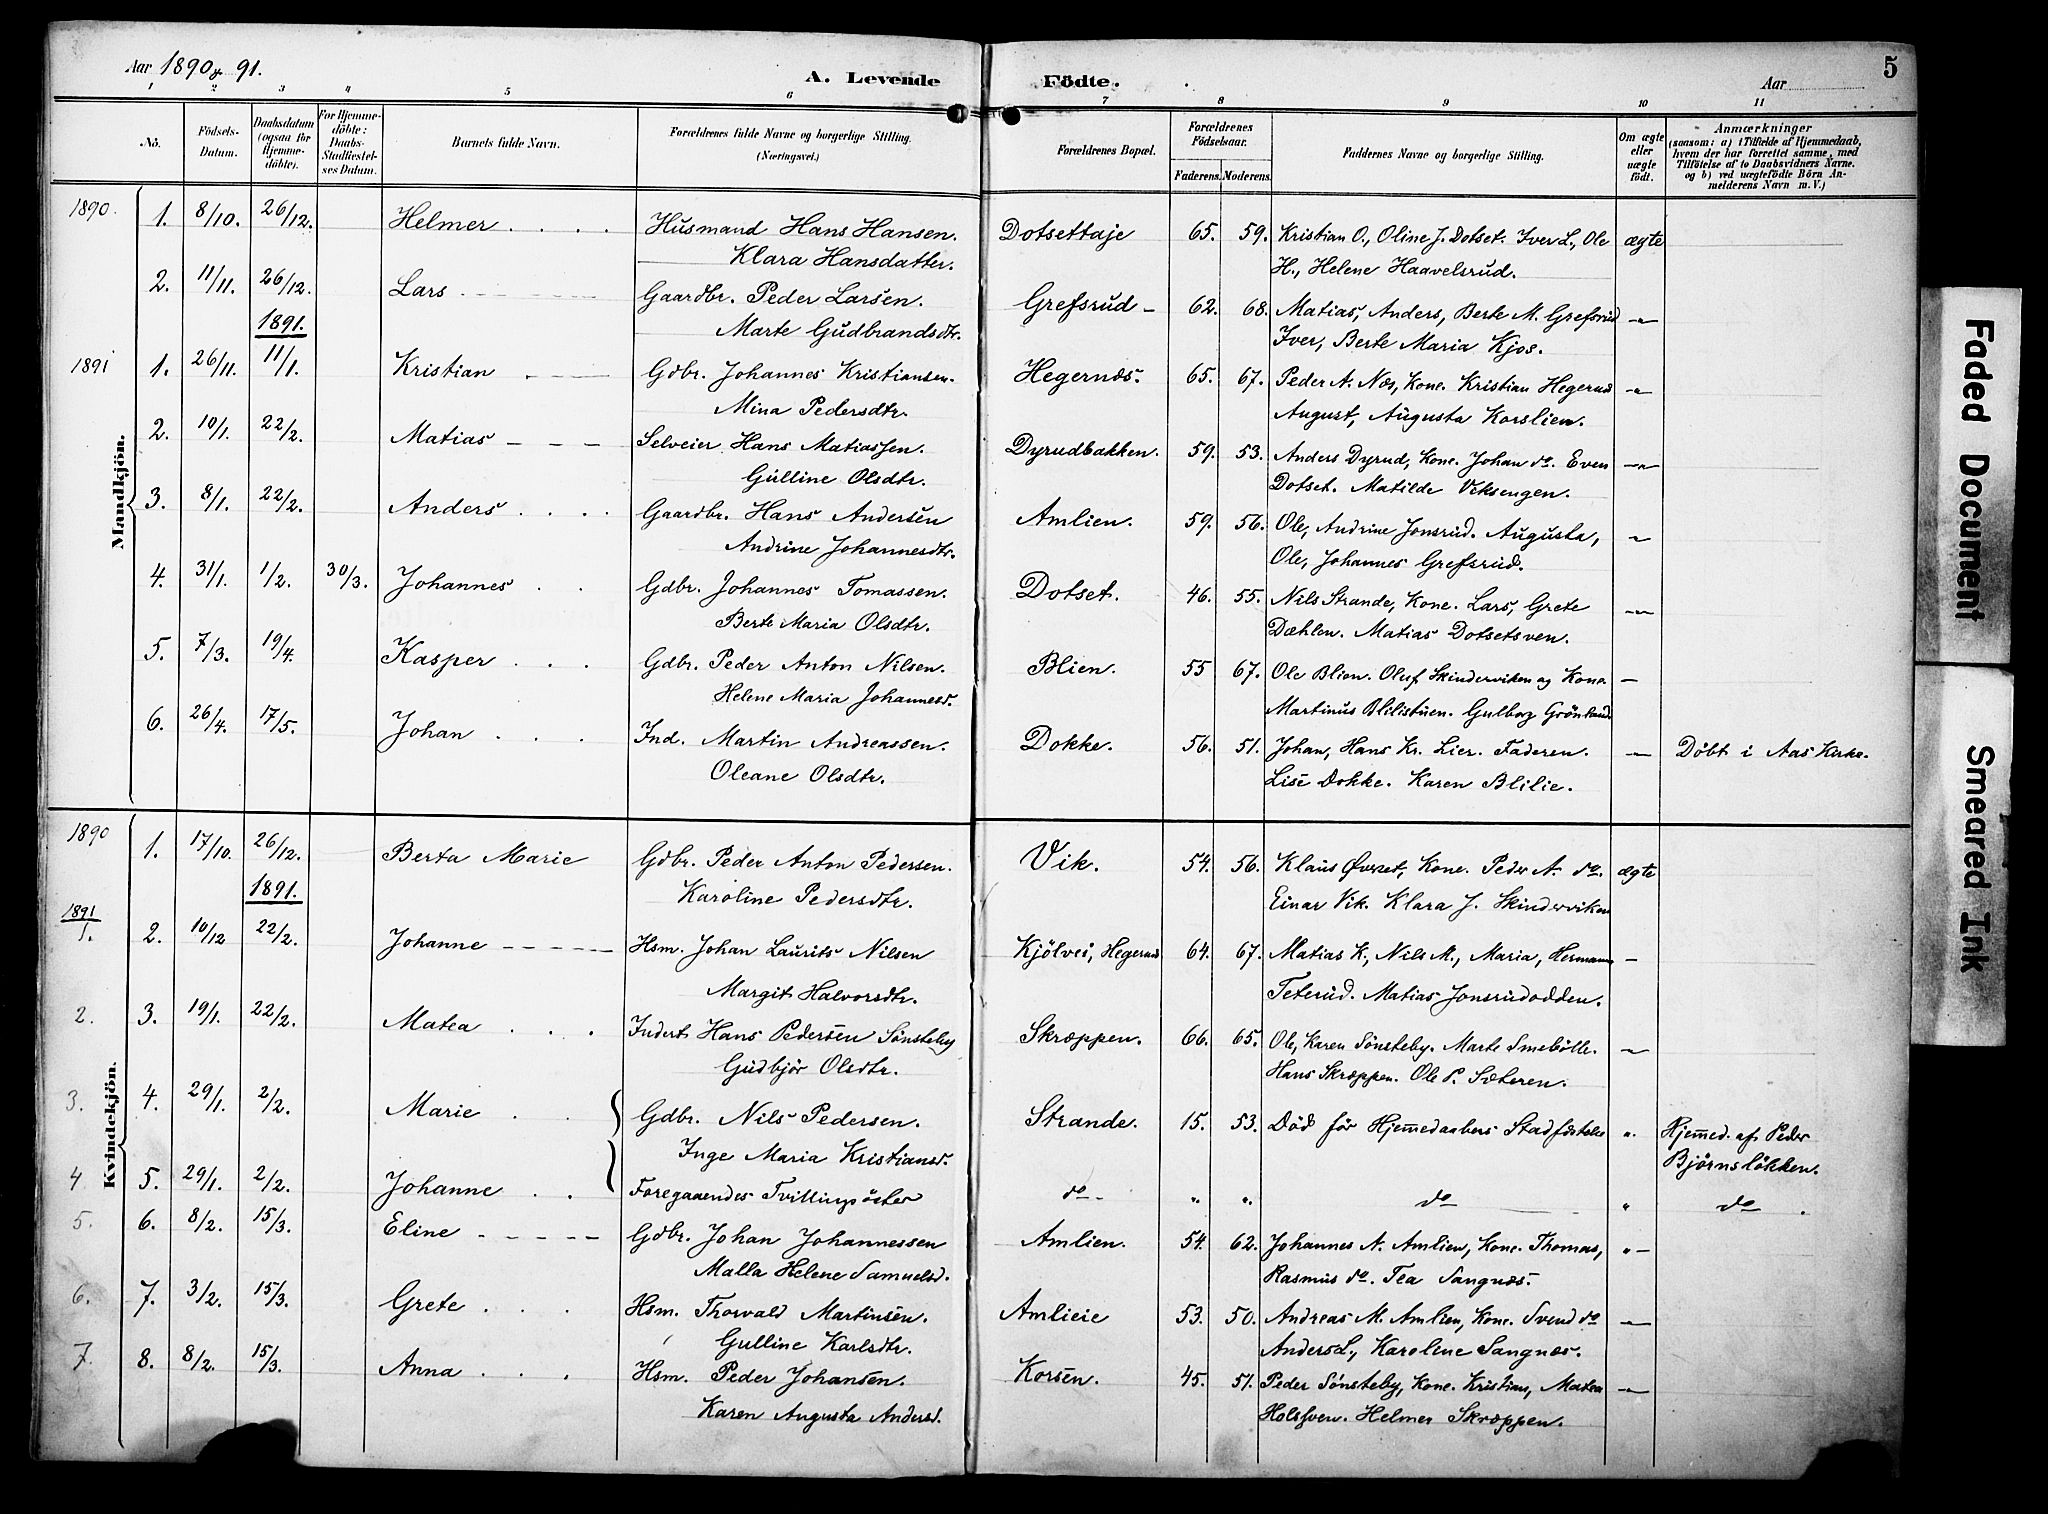 Aar 1890 & 91.
A. Levende Födte.
Aar
5
1 2 3 4 5 6 7 8 9 10 11
No.
Födsels-Datum.
Daabsdatum (ogsaa för Hjemmedöbte).
For Hjemmedöbte: Daabs-Stadfæstelses Datum.
Barnets fulde Navn.
Forældrenes fulde Navne og borgerlige Stilling. (Næringsvei.)
Forældrenes Bopæl.
Forældrenes Födselsaar.
Faderens. Moderens.
Faddernes Navne og borgerlige Stilling.
Om ægte eller uægte födt.
Anmærkninger (saasom: a) i Tilfælde af Hjemmedaab, hvem der har forrettet samme, med Tilföielse af to Daabsvidners Navne. og b) ved uægtefödte Börn Anmelderens Navn m. V.)
Mandkjön.
1890. 1. 8/10. 26/12. Helmer Husmand Hans Hansen. Dotsettaje 65. 59. Kristian O., Oline J. Dotset. Iver L., Ole ægte
Klara Hansdatter. H., Helene Haavelsrud.
2. 11/11. 26/12. Lars Gaardbr. Peder Larsen. Grefsrud 62. 68. Matias, Anders, Berte M. Grefsrud
1891. Marte Gudbrandsdtr. Iver, Berte Maria Kjos.
1891 1. 26/11. 11/1. Kristian Gdbr. Johannes Kristiansen. Hegernæs. 65. 67. Peder A. Næs, Kone. Kristian Hegerud
Mina Pedersdtr. August, Augusta Korslien.
2. 10/1. 22/2. Matias Selveier Hans Matiassen. Dyrudbakken. 59. 53. Anders Dyrud, Kone. Johan do. Even
Gulline Olsdtr. Dotset. Matilde Viksengen.
3. 8/1. 22/2. Anders Gaardbr. Hans Andersen Amlien. 59. 56. Ole, Andrine Jonsrud. Augusta,
Andrine Johannesdtr. Ole, Johannes Grefsrud.
4. 31/1. 1/2. 30/3. Johannes Gdbr. Johannes Tomassen. Dotset. 46. 55. Nils Strande, Kone. Lars, Grete
Berte Maria Olsdtr. Dæhlen. Matias Dotsetsven.
5. 7/3. 19/4. Kasper Gdbr. Peder Anton Nilsen. Blien. 55 67. Ole Blien. Oluf Skinderviken og Kone.
Helene Maria Johannesd. Martinus Blilistuen. Gulborg Grönland.
6. 26/4. 17/5. Johan Ind. Martin Andreassen. Dokke. 56. 51. Johan, Hans Kr. Lier. Faderen. Döbt i Aas Kirke.
Oleane Olsdtr. Lise Dokke. Karen Blilie.
Kvindekjön.
1890 1. 17/10. 26/12. Berta Marie Gdbr. Peder Anton Pedersen. Vik. 54. 56. Klaus Øvrset, Kone. Peder A. do. ægte
1891. Karoline Pedersdtr. Einar Vik. Klara J. Skinderviken
1891 1. 2. 10/12 22/2. Johanne Hsm. Johan Laurits Nilsen Kjölvei, Hegerud 64. 67. Matias K., Nils M., Maria, Hermann
Margit Halvorsdtr. Teterud. Matias Jonsrudodden.
2. 3. 19/1. 22/2. Matea Inderst Hans Pedersen Sönsteby Skræppen. 66. 65. Ole, Karen Sönsteby. Marte Smebölle.
Gudbjör Olsdtr. Hans Skræppen. Ole P. Sæteren.
3. 4. 29/1. 2/2. Marie Gdbr. Nils Pedersen. Strande. 15. 53. Död før Hjemmedaabens Stadfæstelse " Hjemmed. af Peder
Inge Maria Kristiansd. Björnslökken.
4 5. 29/1. 2/2. Johanne Foregaaendes Tvillingsöster do. " " do " do
5. 6. 8/2. 15/3. Eline Gdbr. Johan Johannessen Amlien. 54. 62. Johannes N. Amlien, Kone. Thomas, "
Malla Helene Samuelsd. Rasmus do. Tea Sangnæs.
6. 7. 3/2. 15/3. Grete Hsm. Thorvald Martinsen. Amlieie 53. 50. Andreas M. Amlien, Kone. Svend do
Gulline Karlsdtr. Anders L., Karolene Sangnæs.
7. 8. 8/2. 15/3. Anna Hsm. Peder Johansen. Korsen. 45. 51. Peder Sönsteby, Kone. Kristian, Matea
Karen Augusta Andersd. Helmer Skræppen.
Faded Document
Smeared Ink